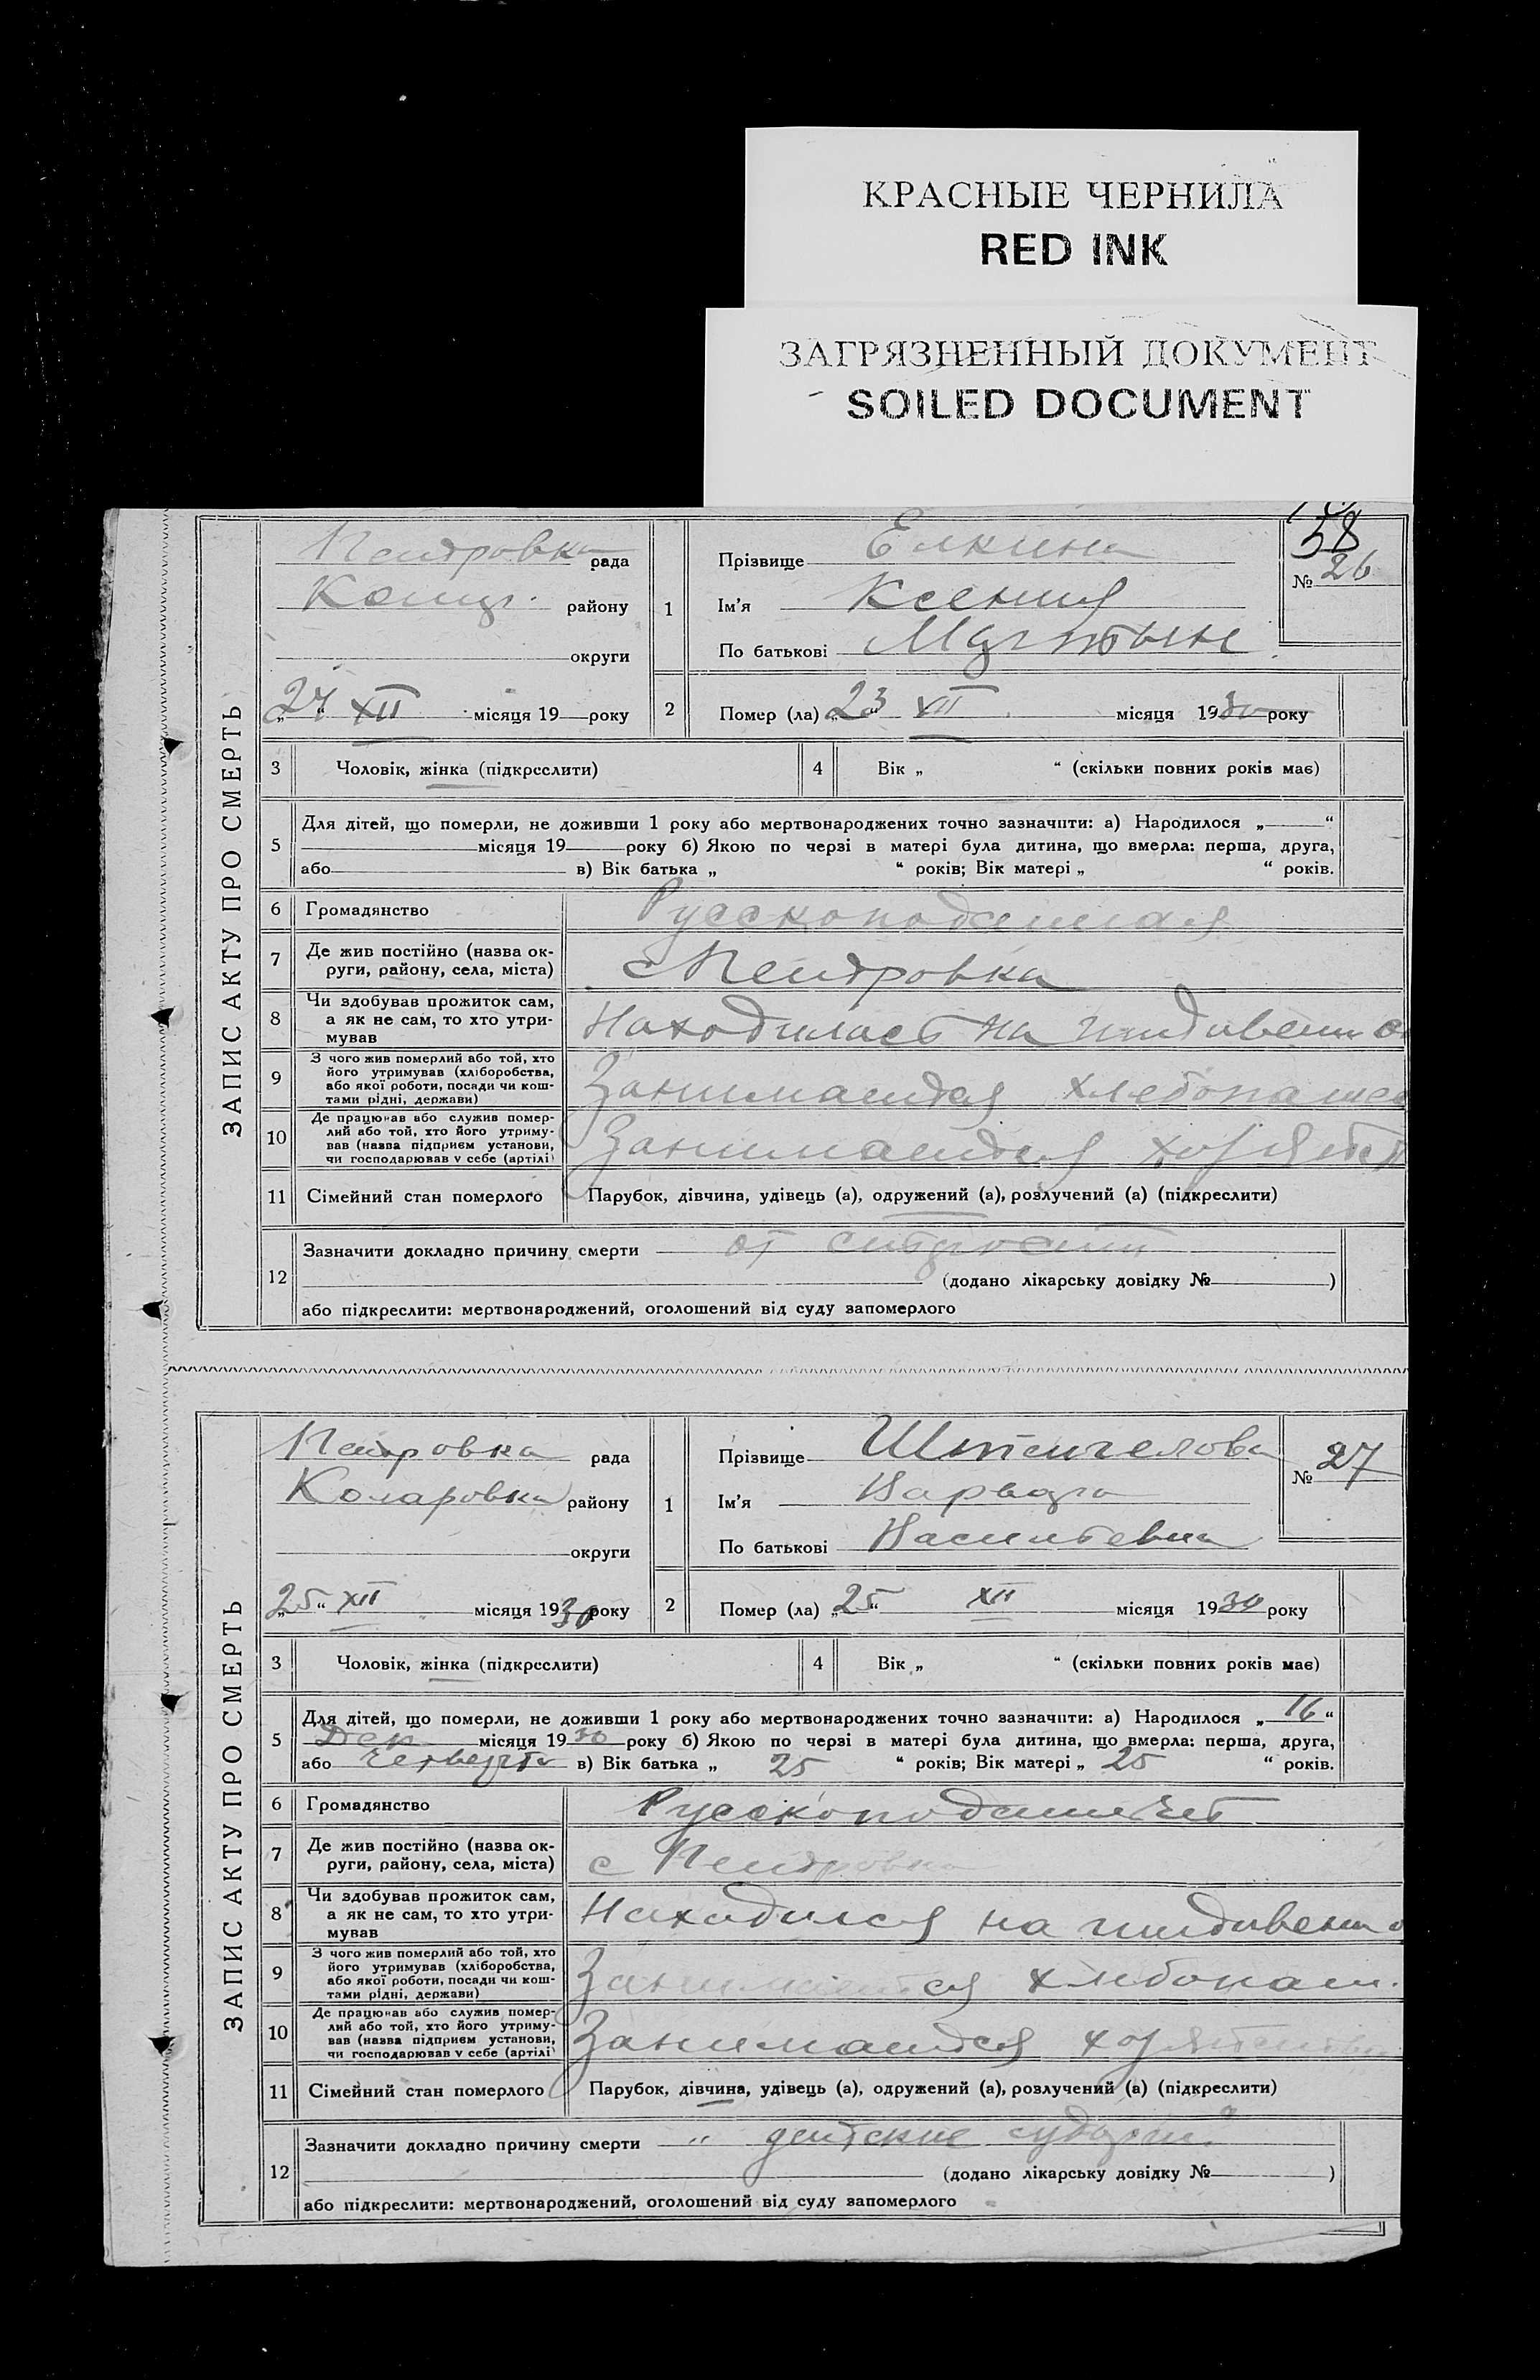 КРАСНЫЕ ЧЕРНИЛА
RED INK
ЗАГРЯЗНЕННЫЙ ДОКУМЕНТ
SOILED DOCUMENT
58
ЗАПИС АКТУ ПРО СМЕРТЬ
Петровка рада
району
округи
24 XII місяця 19 року
1
Прізвище Елкина
Ім'я Ксения
По батькові
№ 26
2
Помер (ла) „23“ XII місяця 1930 року
3 Чоловік, жінка (підкреслити)
4 Вік „ “ (скільки повних років має)
5 Для дітей, що померли, не доживши 1 року або мертвонароджених точно зазначити: а) Народилося „ “
місяця 19 року б) Якою по черзі в матері була дитина, що вмерла: перша, друга,
або в) Вік батька „ “ років; Вік матері „ “ років.
6 Громадянство Русскоподанная
7 Де жив постійно (назва ок-
руги, району, села, міста) с Петровка
8 Чи здобував прожиток сам,
а як не сам, то хто утри-
мував Находилась на
9 З чого жив померлий або той, хто
його утримував (хліборобства,
або якої роботи, посади чи кош-
тами рідні, держави) Занимается
10 Де працював або служив помер-
лий або той, хто його утриму-
вав (назва підприєм установи,
чи господарював у себе (артілі) Занимается
11 Сімейний стан померлого Парубок, дівчина, удівець (а), одружений (а), розлучений (а) (підкреслити)
12 Зазначити докладно причину смерти от старости
(додано лікарську довідку № )
або підкреслити: мертвонароджений, оголошений від суду запомерлого
ЗАПИС АКТУ ПРО СМЕРТЬ
Петровка рада
Коларовка району
округи
„25“ XII місяця 1930 року
1
Прізвище
Ім'я Варвара
По батькові Васильевна
№ 27
2
Помер (ла) „25“ XII місяця 1930 року
3 Чоловік, жінка (підкреслити)
4 Вік „ “ (скільки повних років має)
5 Для дітей, що померли, не доживши 1 року або мертвонароджених точно зазначити: а) Народилося „16“
Дек місяця 1930 року б) Якою по черзі в матері була дитина, що вмерла: перша, друга,
або в) Вік батька „ 25 “ років; Вік матері „ 25 “ років.
6 Громадянство
7 Де жив постійно (назва ок-
руги, району, села, міста) с Петровка
8 Чи здобував прожиток сам,
а як не сам, то хто утри-
мував Находился на
9 З чого жив померлий або той, хто
його утримував (хліборобства,
або якої роботи, посади чи кош-
тами рідні, держави) Занимается хлебопаш.
10 Де працював або служив помер-
лий або той, хто його утриму-
вав (назва підприєм установи,
чи господарював у себе (артілі) Занимается
11 Сімейний стан померлого Парубок, дівчина, удівець (а), одружений (а), розлучений (а) (підкреслити)
12 Зазначити докладно причину смерти детские
(додано лікарську довідку № )
або підкреслити: мертвонароджений, оголошений від суду запомерлого